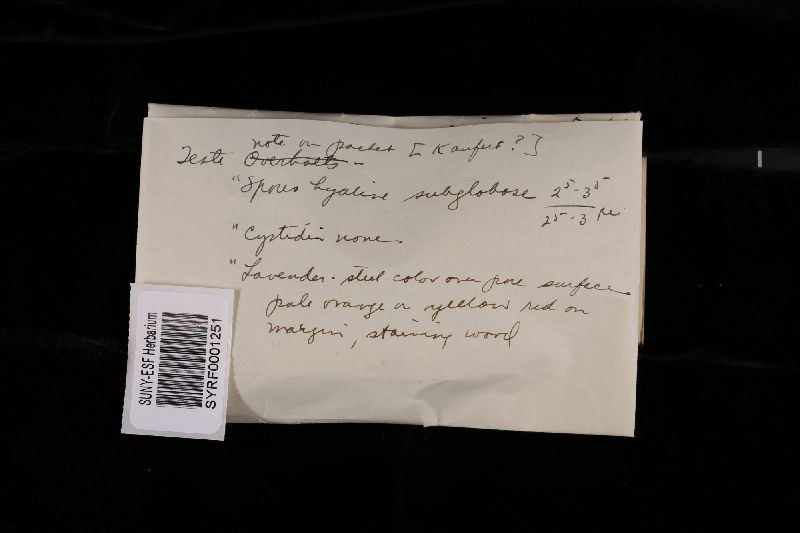 note on packet [Kaufert?]
Teste Overholts -
"Spores hyaline subglobose 2⁵-3⁵
2⁵-3 µ
"Cystidia none.
"Lavender-steel color over pore surface
pale orange or yellow red on
margin, staining wood
SUNY-ESF Herbarium
SYRF0001251